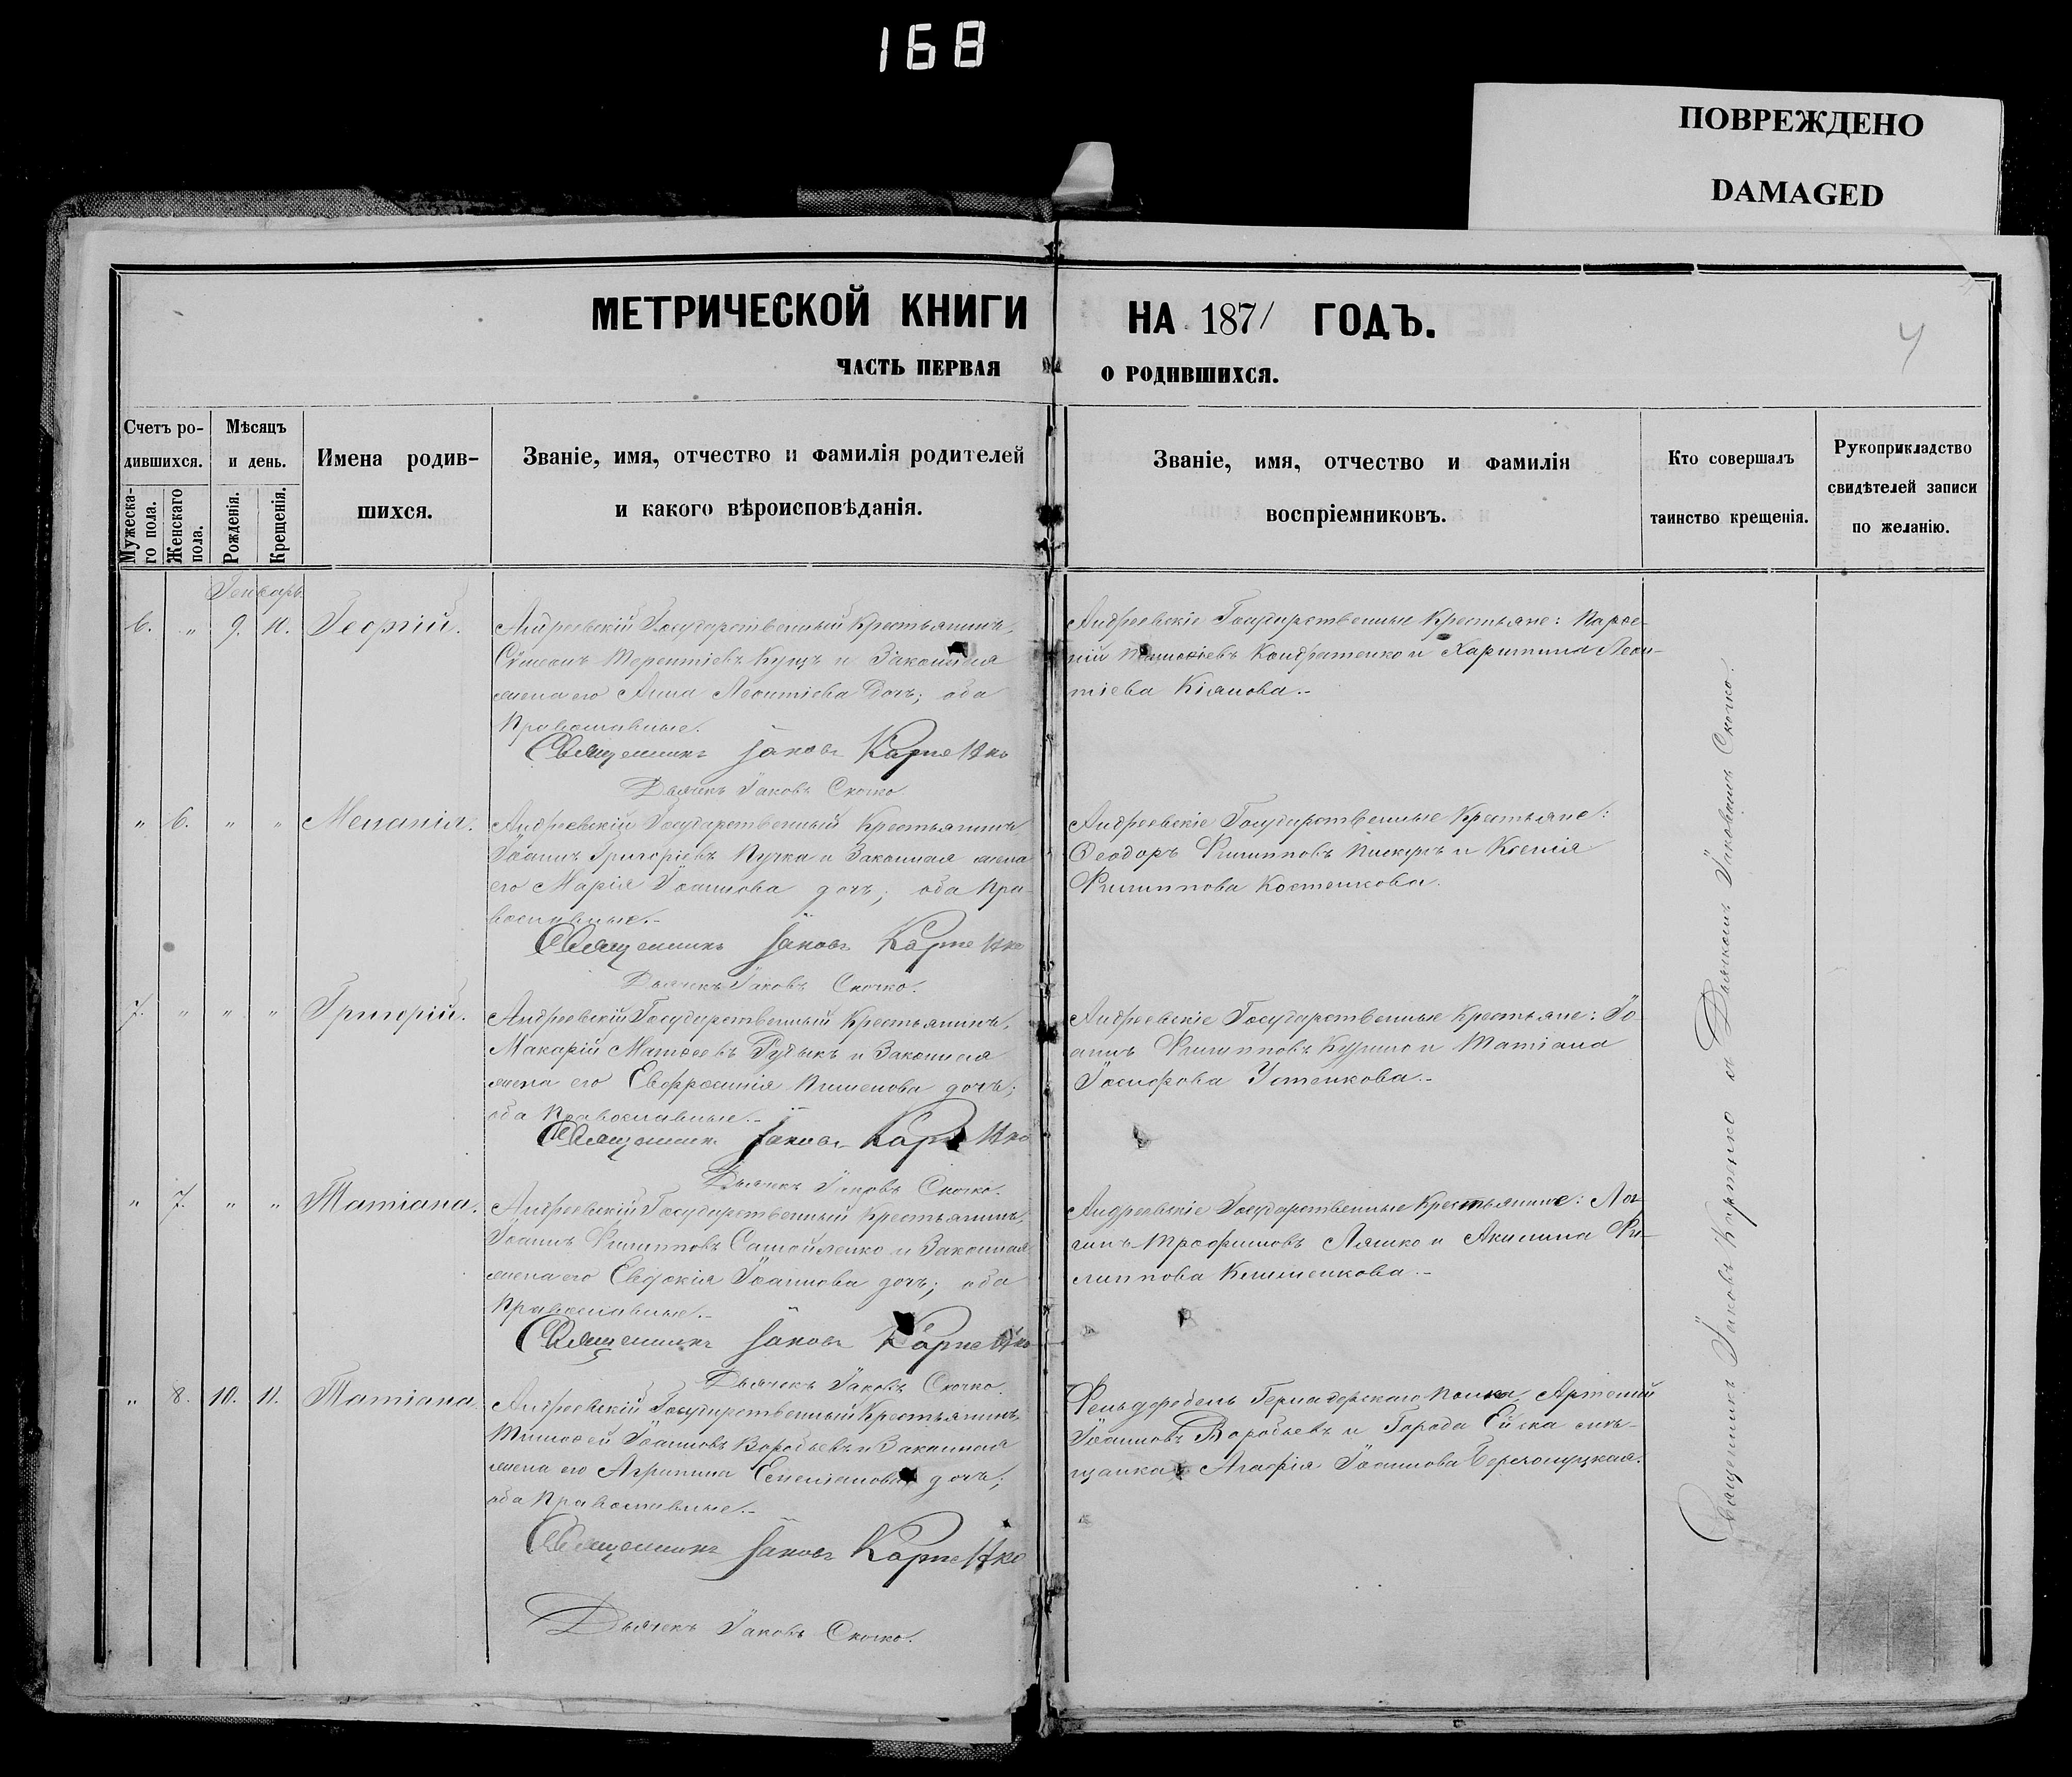 168
ПОВРЕЖДЕНО
DAMAGED
МЕТРИЧЕСКОЙ КНИГИ НА 1871 ГОДЪ.
ЧАСТЬ ПЕРВАЯ О РОДИВШИХСЯ.
4
Счетъ ро-
дившихся.
Мужеска-
го пола.
Женскаго
пола.
Мѣсяцъ
и день.
Рожденія.
Крещенія.
Имена родив-
шихся.
Званіе, имя, отчество и фамилія родителей
и какого вѣроисповѣданія.
Званіе, имя, отчество и фамилія
воспріемниковъ.
Кто совершалъ
таинство крещенія.
Рукоприкладство
свидѣтелей записи
по желанію.
Генварь
6. " 9. 11. Георгій.
Андреевскій Государственный Крестьянинъ,
Сѵмеонъ Терентіевъ Куцъ и Законная
жена его Анна Леонтіева дочь; оба
Православные.
Священникъ Іаковъ Карпенко
Дьячекъ Іаковъ Скочко.
Андреевскіе Государственные Крестьяне:
Кондратенко и Харитина Леон-
тіева
" 6. " " Меланія.
Андреевскій Государственный Крестьянинъ
Іоаннъ Григоріевъ Пучка и Законная жена
его Марія Іоаннова дочь; оба Пра-
вославные.-
Священникъ Іаковъ Карпенко
Дьячекъ Іаковъ Скочко.
Андреевскіе Государственные Крестьяне:
Ѳеодоръ Филипповъ Пискунъ и Ксенія
Филиппова Костенкова.
7. " " " Григорій.
Андреевскій Государственный Крестьянинъ,
Макарій Матѳеевъ Рудыкъ и Законная
жена его Евфросинія Пименова дочь;
оба Православные.-
Священникъ Іаковъ Карпенко
Дьячекъ Іаковъ Скочко.
Андреевскіе Государственные Крестьяне: Іо-
аннъ Филипповъ и Татіана
Іосифова Устенкова.-
" 7. " " Татіана.
Андреевскій Государственный Крестьянинъ,
Іоаннъ Филипповъ Самойленко и Законная
жена его Евдокія Іоаннова дочь; оба
Православные.-
Священникъ Іаковъ Карпенко
Дьячекъ Іаковъ Скочко.
Андреевскіе Государственные Крестьяне: Лог-
гинъ Трофимовъ Ляшко и Акилина Фи-
липпова Клименкова.-
" 8. 10. 11. Татіана.
Андреевскій Государственный Крестьянинъ,
Тимоѳей Іоанновъ Воробьевъ и Законная
жена его Агрипина Емеліанова дочь;
оба Православные.-
Священникъ Іаковъ Карпенко
Дьячекъ Іаковъ Скочко.
Фельдфебель Гернадерскаго Полка, Артемій
Іоанновъ Воробьевъ и Города Ейска мѣ-
щанка Агафія Іоаннова
Священникъ Іаковъ Карпенко съ Дьячкомъ Іаковомъ Скочко.